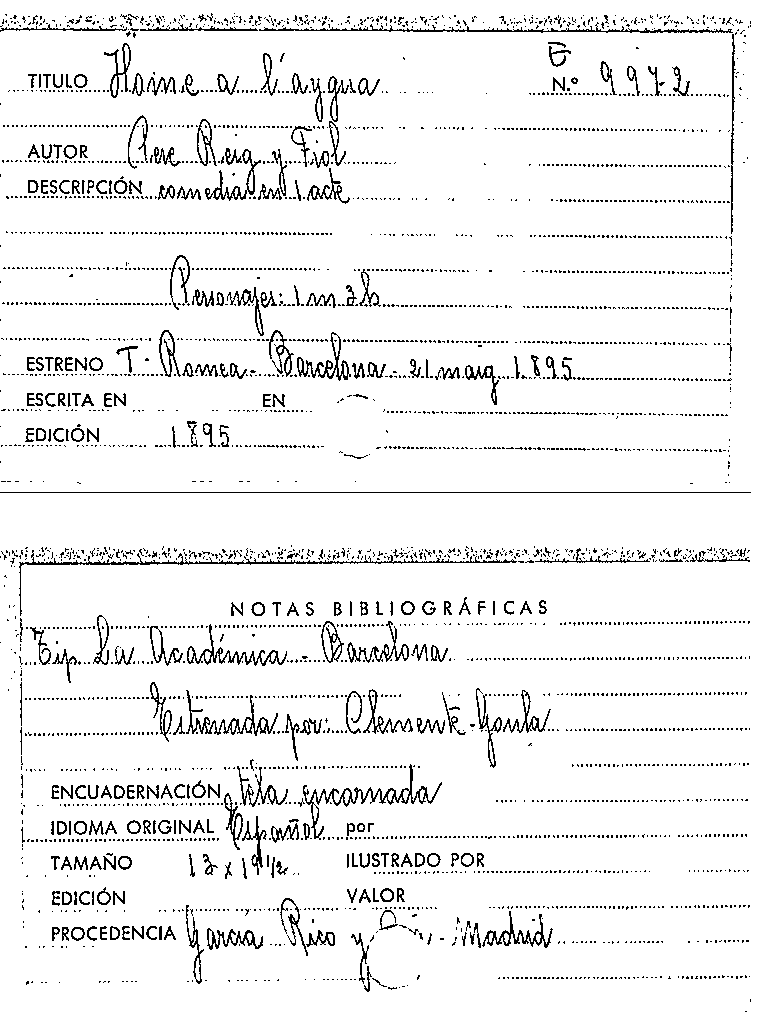 TITULO Home a l'aygua
Nº 9972
AUTOR Pere Reig y Fiol
DESCRIPCIÓN comedia en 1 acte
Personajes: 1 m 3 h
ESTRENO T. Romea - Barcelona - 21 maig 1895
ESCRITA EN EN
EDICIÓN 1895
NOTAS BIBLIOGRÁFICAS
Tip. La Académica - Barcelona
Estrenada por: Clemente - Goula
ENCUADERNACIÓN tela encarnada
IDIOMA ORIGINAL Español por
TAMAÑO 13 x 19 1/2 ILUSTRADO POR
EDICIÓN VALOR
PROCEDENCIA García Rico y - Madrid